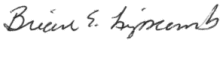 Brian E. Lipscomb